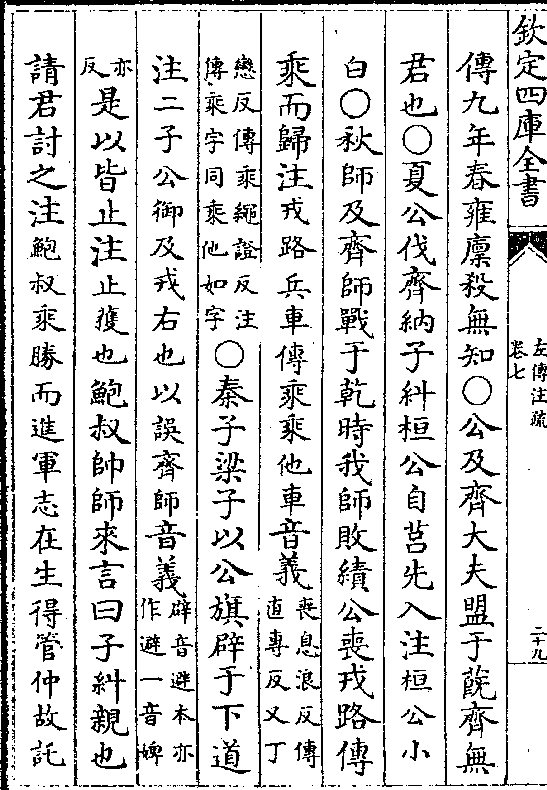 欽定四庫全書
左傳注疏
卷七
二十九
傳九年春雍廩殺無知○公及齊大夫盟于蔇齊無
君也○夏公伐齊納子糾桓公自莒先入注桓公小
白○秋師及齊師戰于乾時我師敗績公喪戎路傳
乘而歸注戎路兵車傳乘乘他車音義喪息浪反傳直專反又丁
戀反傳乘繩證反注傳乘字同乘他如字○秦子梁子以公旗辟于下道
注二子公御及戎右也以誤齊師音義辟音避本亦作避一音婢
亦反是以皆止注止獲也鮑叔帥師來言曰子糾親也
請君討之注鮑叔乘勝而進軍志在生得管仲故託